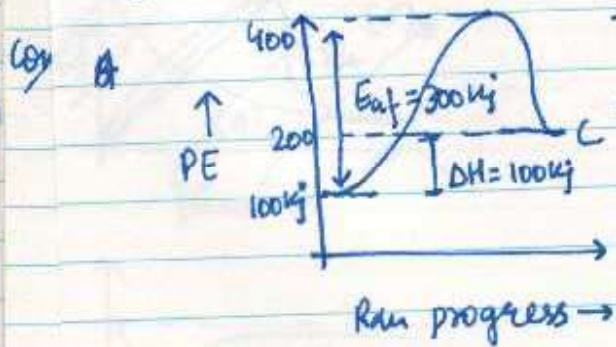 400
Eaf = 300 kj
PE
200
C
ΔH = 100 kj
100 kj
Rxn progress →